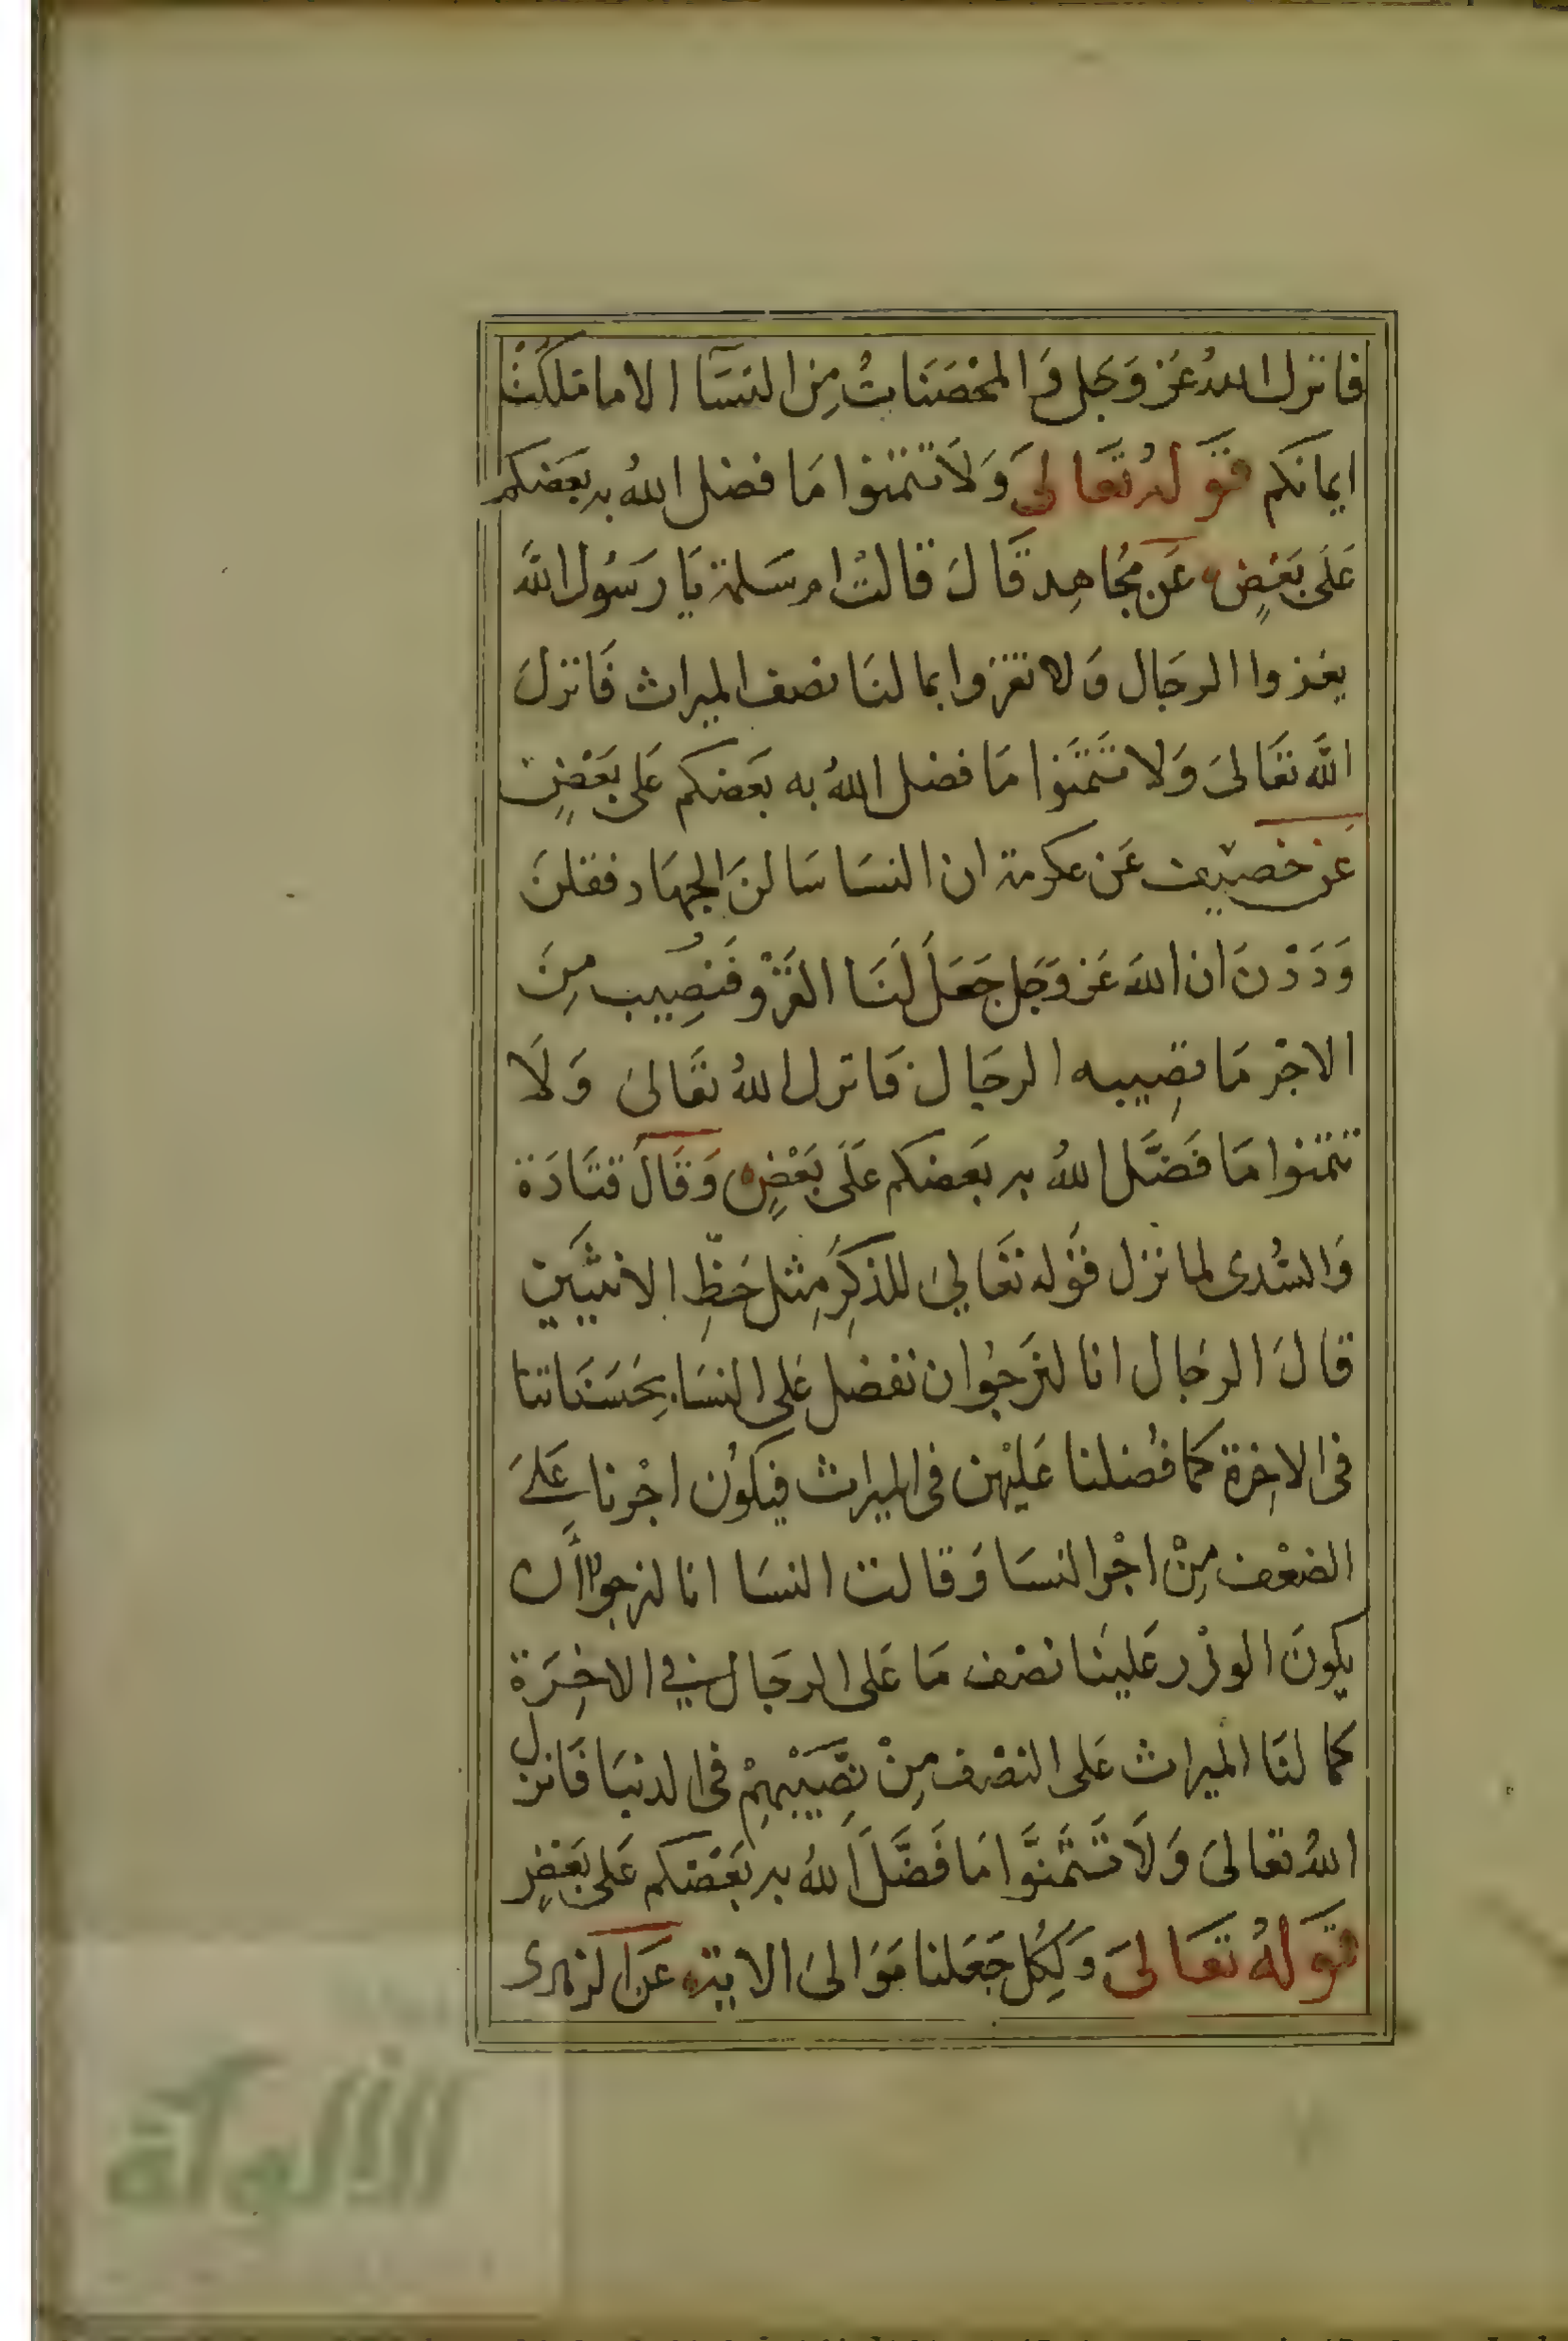 فانزل اللهُ عَز وَجل وَالمحْصَنَاتُ مِن النسَآ الا ما ملكتْ
ايمانكم قَولهُ تعَالىَ وَلَا تتمنوا مَا فضل اللهُ به بعَضكم
عَلَى بَعْضٍ عَن مجُاهِد قَالَ قالتْ ام سَلمة يَا رَسُول اللَّه
يغزوا الرجَال وَلا نغزوا بما لنَا نصف الميراث فَانزلَ
اللَّه تعَالىَ وَلا تتَمَنوا مَا فضل اللهُ به بعَضكم عَلى بَعْضٍ
عَن خصيف عَن عكرمة ان النسَا سَالنَ الجهَاد فقلنَ
وَدَدْنَ ان اللهَ عَز وَجَل جَعَلَ لَنَا الغَزْوَ فَنصُِيب مِنَ
الاجْر مَا تصِيبه الرجَال فَانزل اللهُ تعَالىَ وَلَا
تتمنوا مَا فَضَّل اللهُ به بَعضكم عَلَى بَعْضٍ وَقَالَ قتَادَة
وَالسُدى لما نزل قَوْله تعَاليَ للذكِرَ مِثل حَظِّ الانثيَين
قالَ الرجَال انا لنرَجوُا ان نفضل عَلى النسَا بِحَسَنَاتنا
فى الاخِرَة كما فُضلنا عَليْهن فى الميراث فيكوُن اجْرنا عَلىَ
الضعْف مِنْ اجْر النسَا وَقالت النسَا انا لنرجوُا أَن
يكونَ الوزْر عَلينَا نصْف مَا عَلى الرجَال في الاخِرَة
كما لنَا الميراث عَلى النصْف مِنْ نصِيَبْهِمْ فى الدنيَا فَانزل
اللهُ تعَالىَ وَلَا تَتَمَنَّوا مَا فَضَّلَ اَللهُ به بَعْضكم عَلى بَعْضٍ
قَولهُ تعَالىَ وَلِكُل جَعَلنا مَوَالىَ الاية عَن الزهرى
الألوكة